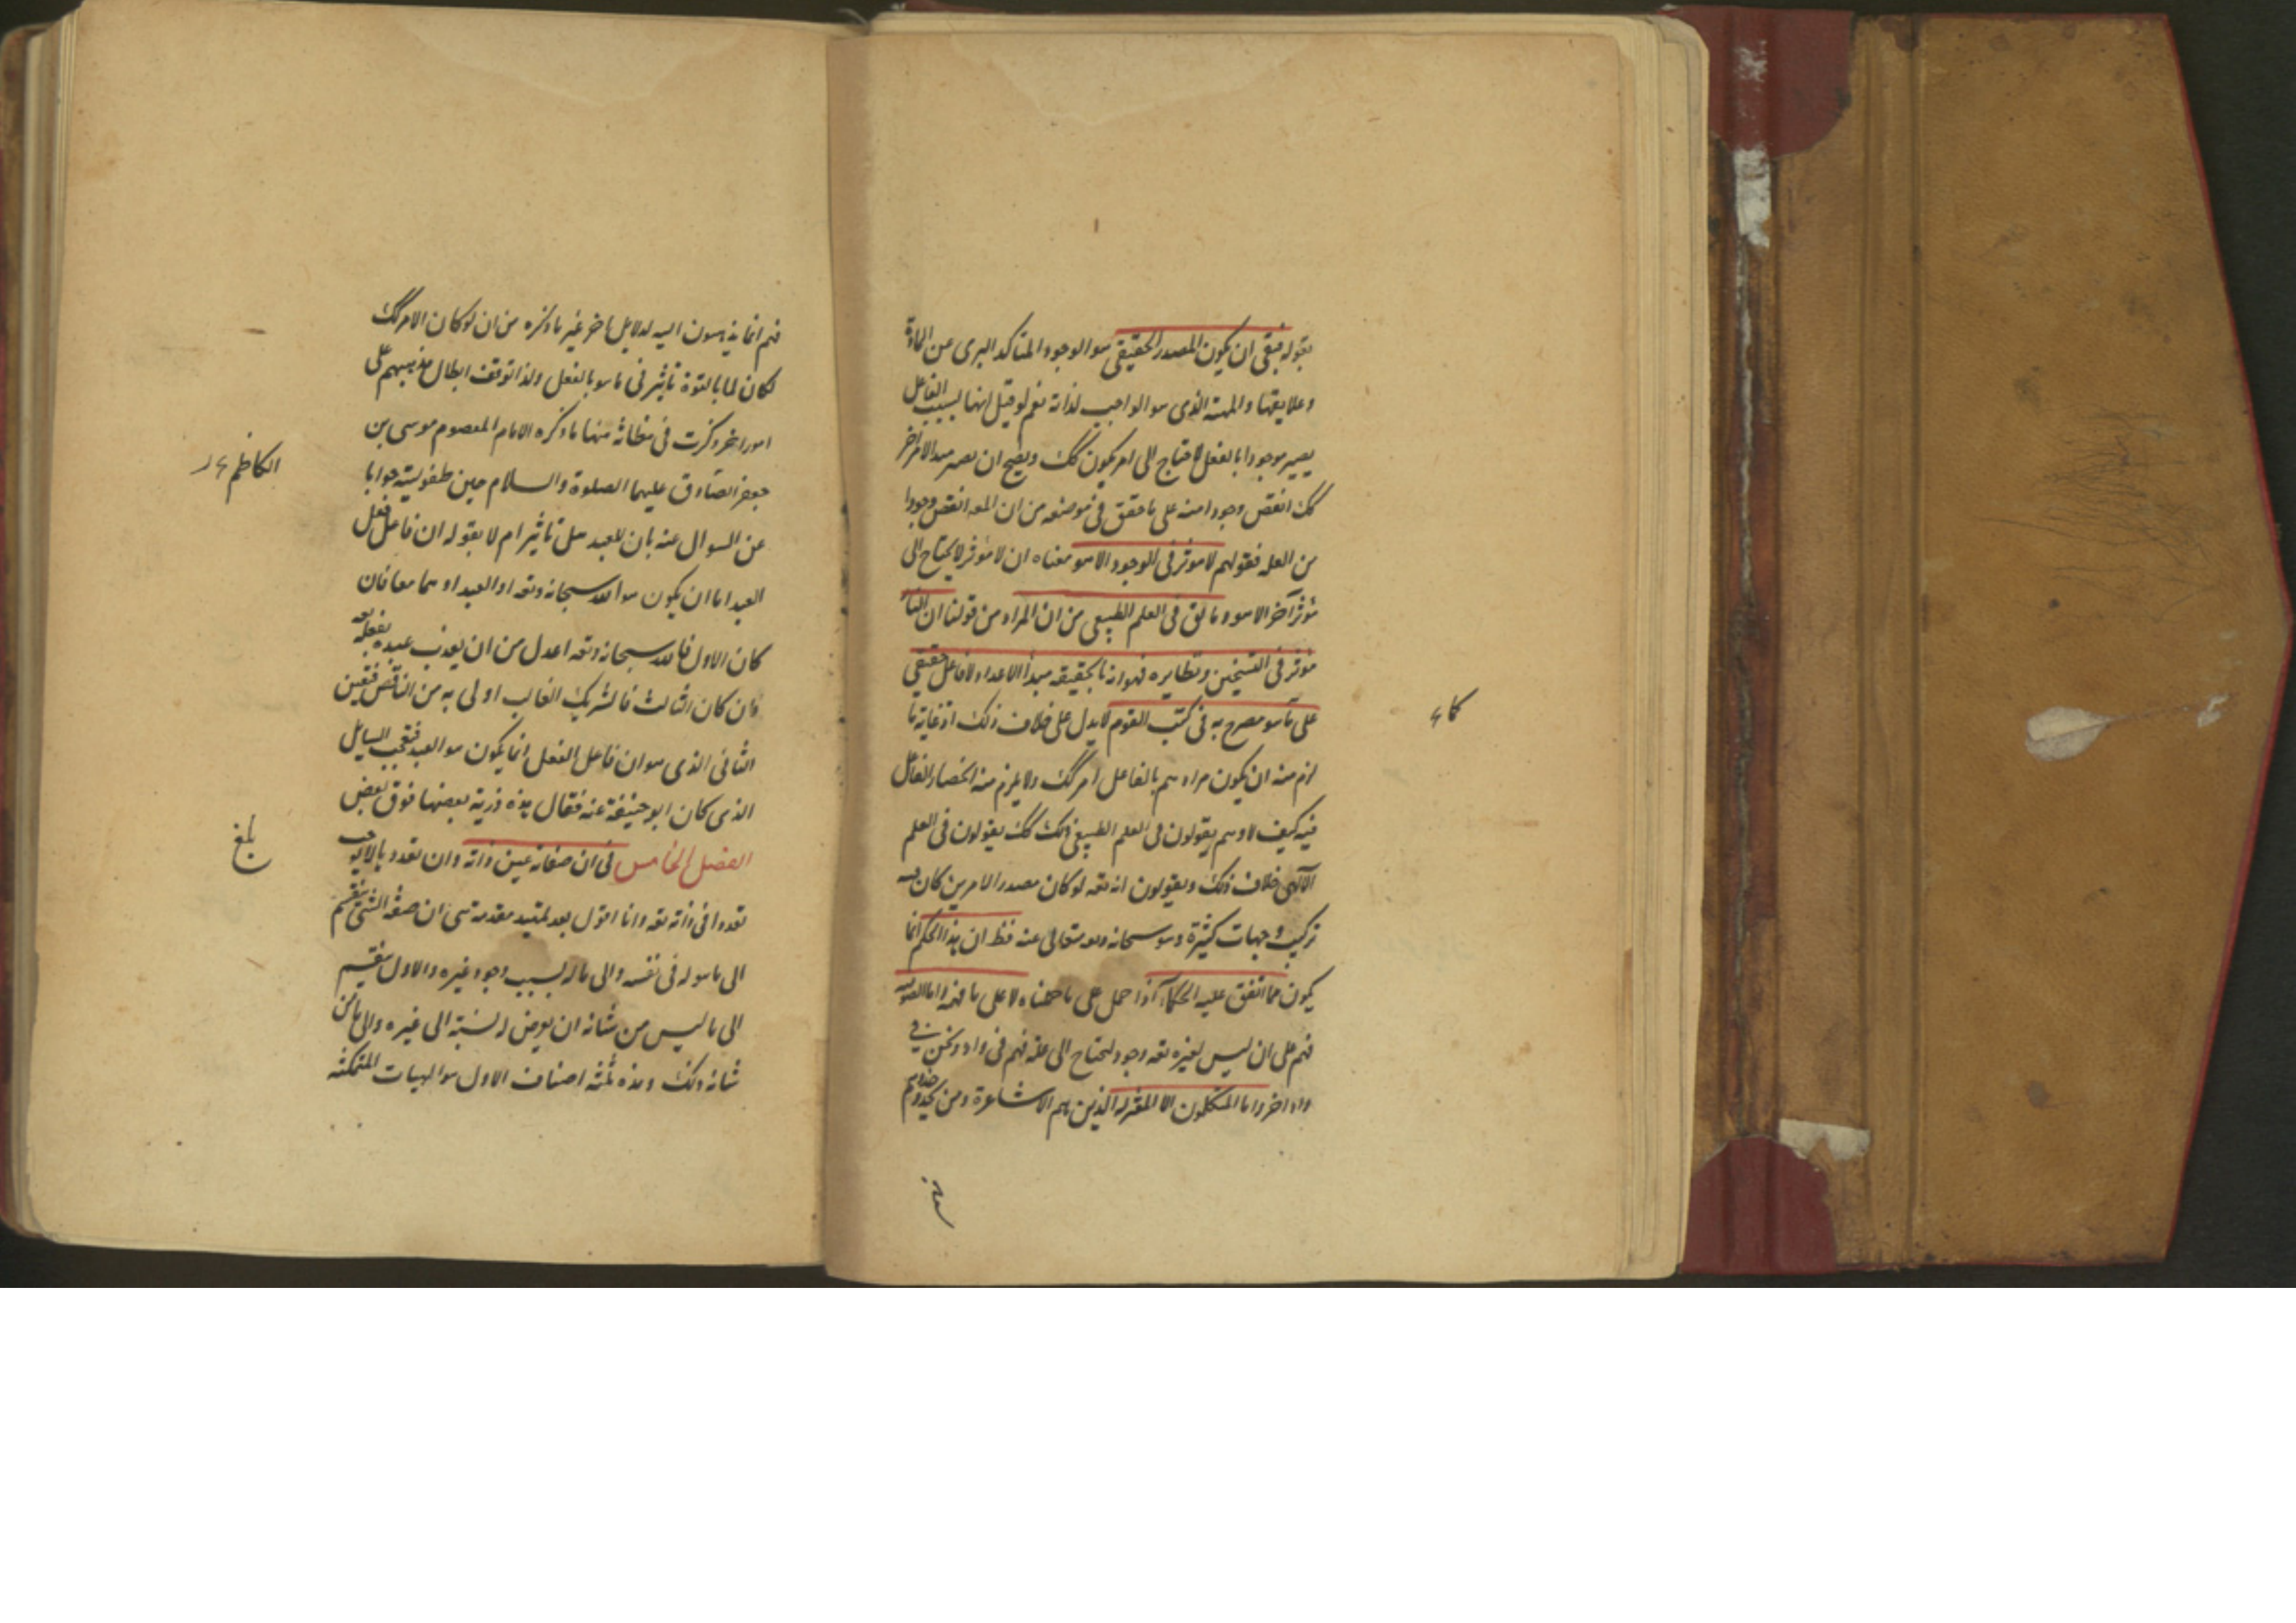 بقوله فبقى ان يكون المصدر الحقيقى هو الوجود المتاكد البرى عن المادة
وعلايقها والمهية الذى هو الواجب لذاته نعم لو قيل انها بسبب الفاعل
يصير موجودا بالفعل لاحتاج الى امر يكون كك ويصح ان يصير مبدا لامر اخر
كك انقص وجودا منه على ما حقق فى موضعه من ان المعه انقص وجودا
من العله فقولهم لا موثر فى الوجود الا هو معناه ان لا موثر لا يحتاج الى
موثر آخر الا هو وما لق فى العلم الطبيعى من ان المراد من قولنا ان النار
موثر فى التسخين ونظايره فهو انه بالحقيقه مبدأ الاعداد لا فاعل حقيقى
على ما هو مصرح به فى كتب القوم لا يدل على خلاف ذلك اذ غاية ما
لزم منه ان يكون مرادهم بالفاعل امر كك ولا يلزم منه انحصار الفاعل
فيه كيف لا وهم يقولون فى العلم الطبيعى ذلك كك يقولون فى العلم
الآلهى خلاف ذلك ويقولون انه تعه لو كان مصدر الامرين كان فيه
تركيب وجهات كثيرة وهو سبحانه وتعه متعالى عنه فظ ان هذا الحكم انما
يكون مما اتفق عليه الحكماء اذا حمل على ما حققناه لا على ما فهم واما الصوفيه
فهم على ان ليس لغيره تعه وجود ليحتاج الى عله فهم فى واد ونحن فى
واد اخر واما المتكلمون الا المعتزله الذين هم الاشاعرة ومن يحذو حذوهم
كاء
فهم انما يذهبون اليه لدلايل اخر غير ما ذكره من ان لو كان الامر كك
لكان لما بالقوة تاثير فى ما هو بالفعل ولذا توقف ابطال مذهبهم على
امور اخر ذكرت فى مظانه منها ما ذكره الامام المعصوم موسى بن
جعفر الصادق عليهما الصلوة والسلام حين طفوليته جوابا
عن السوال عنه بان للعبد هل تاثير ام لا بقوله ان فاعل فعل
العبد اما ان يكون هو الله سبحانه وتعه او العبد او هما معا فان
كان الاول فالله سبحانه وتعه اعدل من ان يعذب عبده بفعله
وان كان الثالث فالشريك الغالب اولى به من الناقص فتعين
الثانى الذى هو ان فاعل الفعل انما يكون هو العبد فتعجب السايل
الذى كان ابو حنيفة عنه فقال هذه ذرية بعضها فوق بعض
الفصل الخامس فى ان صفاته عين ذاته وان تعددها لا يوجب
تعددا فى ذاته تعه وانا اقول بعد تمهيد مقدمة هى ان صفة الشئ ينقسم
الى ما هو له فى نفسه والى ما له بسبب وجود غيره والاول ينقسم
الى ما ليس من شانه ان يعرض له نسبة الى غيره والى ما من
شانه ذلك وهذه ثلثه اصناف الاول هو الهيات المتمكنه
الكاظم ع
بلغ